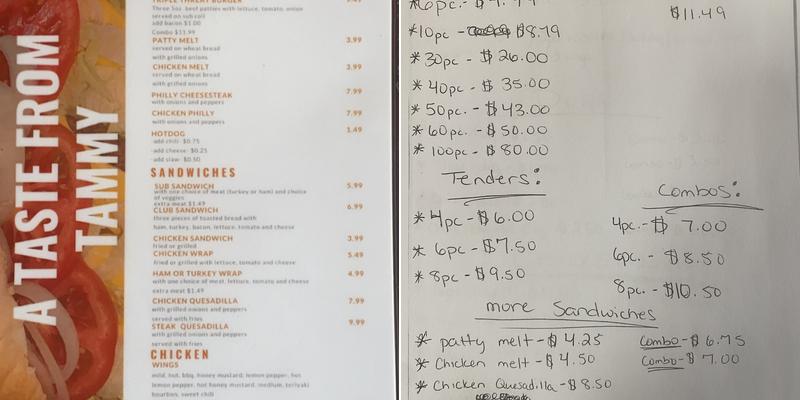 A TASTE FROM
TAMMY
TRIPLE THREAT BURGER
Three 5oz. beef patties with lettuce, tomato, onion
served on sub roll
add bacon $1.00
Combo $11.99
PATTY MELT 3.99
served on wheat bread
with grilled onions
CHICKEN MELT 3.99
served on wheat bread
with grilled onions
PHILLY CHEESESTEAK 7.99
with onions and peppers
CHICKEN PHILLY 7.99
with onions and peppers
HOTDOG 1.49
add chili- $0.75
add cheese- $0.25
add slaw- $0.50
SANDWICHES
SUB SANDWICH 5.99
with one choice of meat (turkey or ham) and choice
of veggies
extra meat $1.49
CLUB SANDWICH 6.99
three pieces of toasted bread with
ham, turkey, bacon, lettuce, tomato and cheese
CHICKEN SANDWICH 3.99
fried or grilled
CHICKEN WRAP 5.49
fried or grilled with lettuce, tomato and cheese
HAM OR TURKEY WRAP 4.99
with one choice of meat, lettuce, tomato and cheese
extra meat $1.49
CHICKEN QUESADILLA 7.99
with grilled onions and peppers
served with fries
STEAK QUESADILLA 9.99
with grilled onions and peppers
served with fries
CHICKEN
WINGS
mild, hot, bbq, honey mustard, lemon pepper, hot
lemon pepper, hot honey mustard, medium, teriyaki
bourbon, sweet chili
*6pc.-
$11.49
*10pc - $8.79
*30pc - $26.00
*40pc - $35.00
*50pc. - $43.00
*60pc. - $50.00
*100pc - $80.00
Tenders:
*4pc - $6.00
*6pc - $7.50
*8pc - $9.50
Combos:
4pc.- $7.00
6pc. - $8.50
8pc. - $10.50
more Sandwiches
* patty melt - $4.25 Combo - $6.75
* Chicken melt - $4.50 Combo - $7.00
* Chicken Quesadilla - $8.50